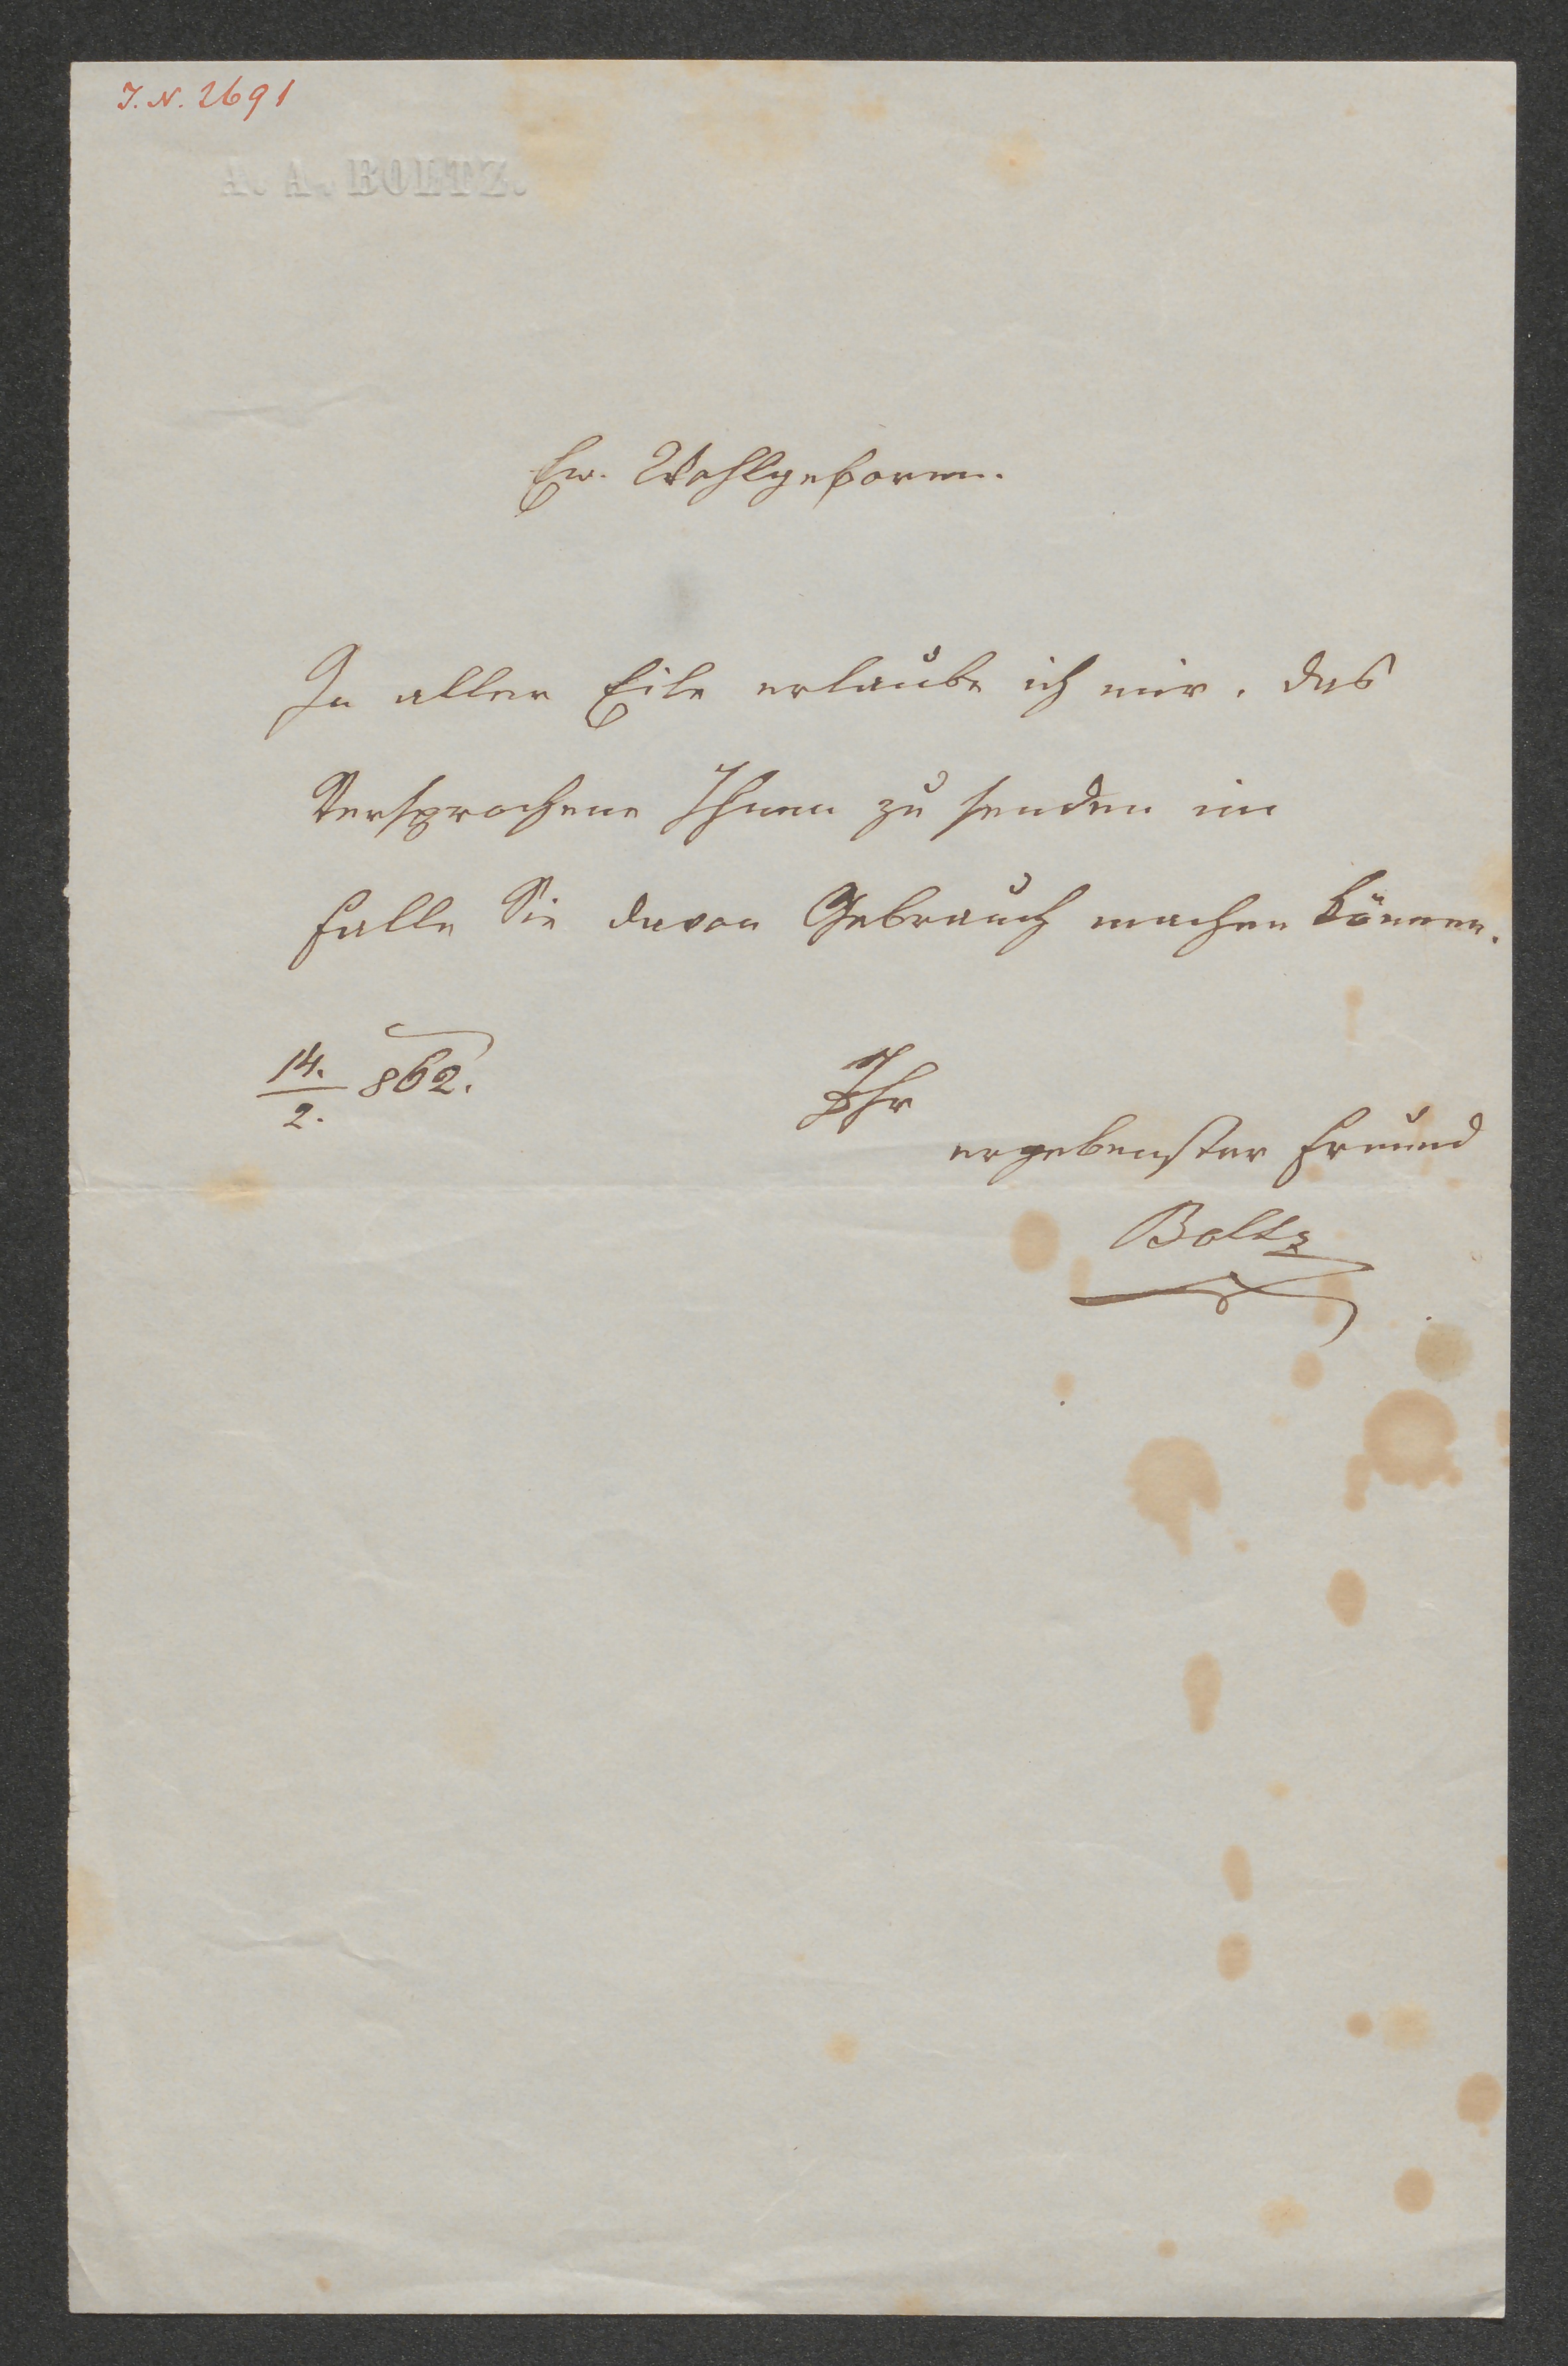 I. N. 2691
A. A. BOLTZ.
Ew. Wohlgeboren.
In aller Eile erlaube ich mir, das
Versprochene Ihnen zu senden im
Falle Sie davon Gebrauch machen können.
14./2. 862.
Ihr
ergebenster Freund
Boltz